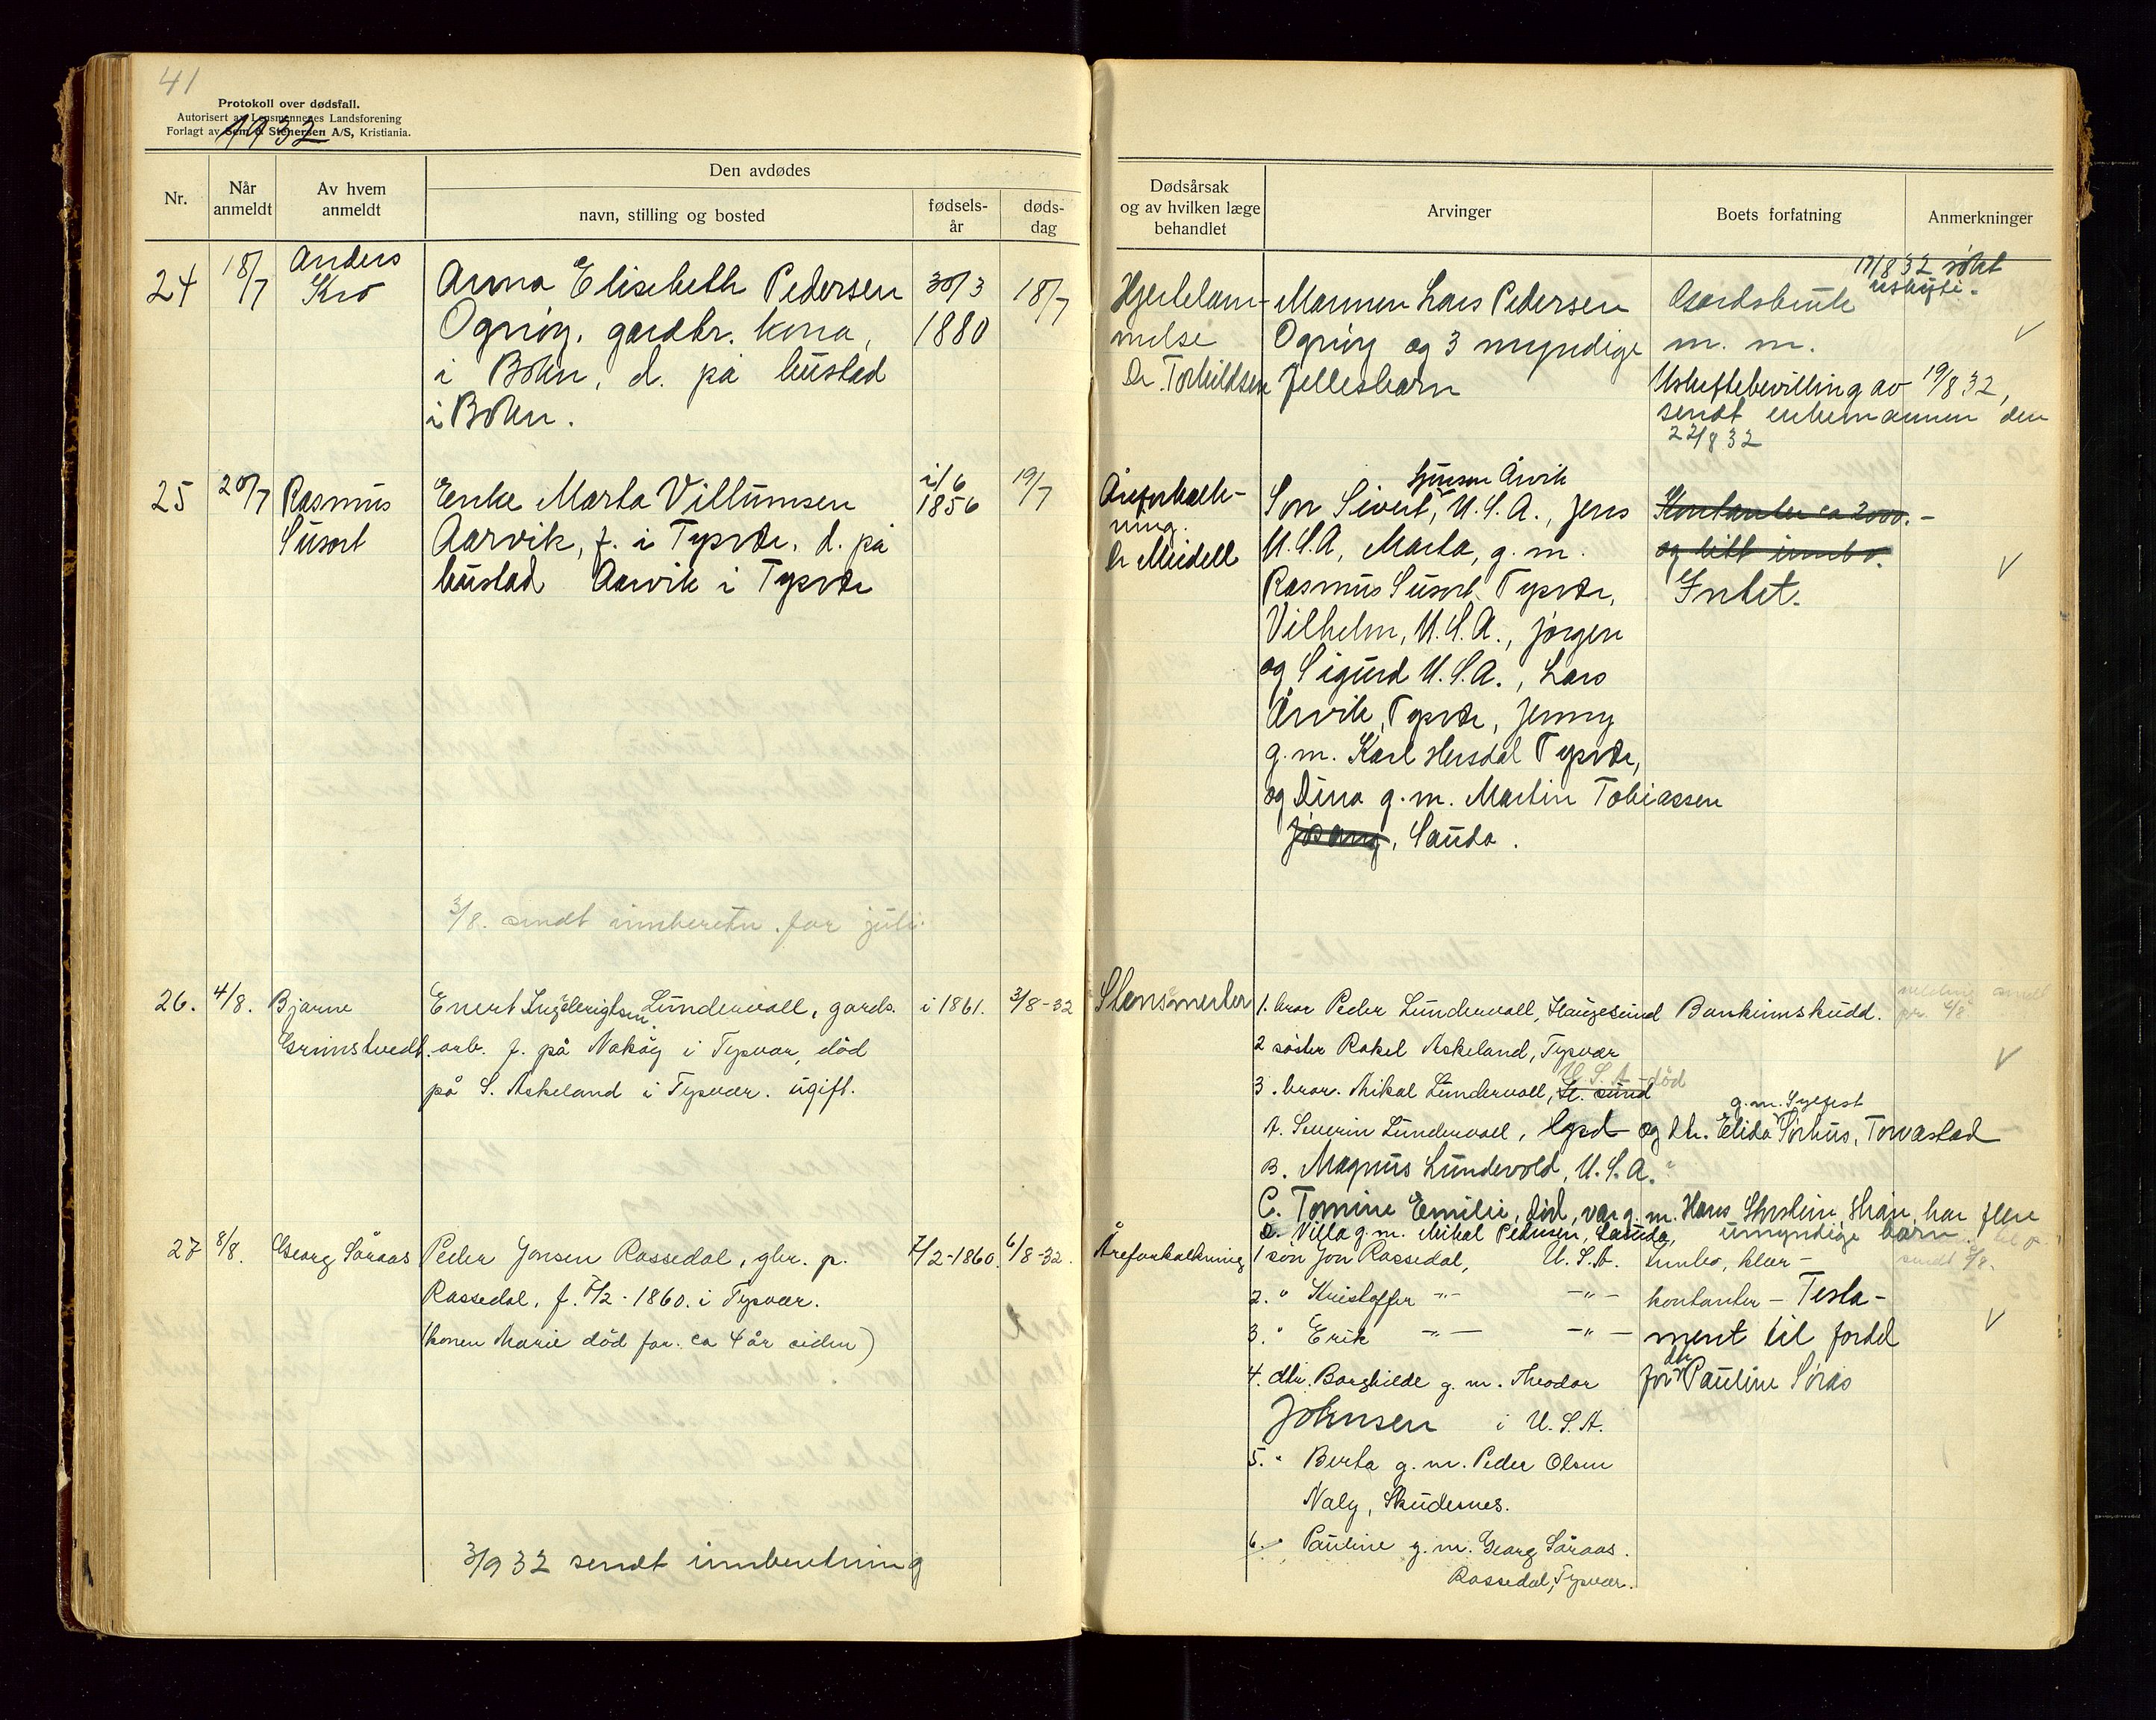 41
Protokoll over dødsfall.
Autorisert av Lensmennenes Landsforening
Forlagt av Sem & Stenersen A/S, Kristiania.
1932
Nr.
Når anmeldt
Av hvem anmeldt
Den avdødes
navn, stilling og bosted
fødsels-år
døds-dag
Dødsårsak og av hvilken læge behandlet
Arvinger
Boets forfatning
Anmerkninger
24
18/7
Anders
Kro
Anna Elisebeth Pedersen
Ognøy, gardbr. kona,
i Bokn, d. på bustad
i Bokn.
30/3
1880
18/7
Hjertelam-
melse
Dr. Torkildsen
Mannen Lars Pedersen
Ognøy og 3 myndige
fellesbarn
Gardsbruk
m. m.
17/8 32 søkt
uskifte.
Uskiftebevilling av 19/8 32,
sendt enkemannen den
22/8 32
25
20/7
Rasmus
Susort
Enke Marta Villumsen
Aarvik, f. i Tysvær, d. på
bustad Aarvik i Tysvær
i/6
1856
19/7
Åreforkalk-
ning.
Dr Meidell
Årvik
Son Sivert, U.S.A., Jens
U.S.A, Marta, g.m.
Rasmus Susort, Tysvær,
Vilhelm, U.S.A., Jørgen
og Sigurd U.S.A., Lars
Årvik, Tysvær, Jenny
g.m. Karl Hersdal Tysvær,
og Dina g.m. Martin Tobiassen
Jøsang, Sauda.
Kontanter ca 2000.-
og litt innbo.
Intet.
3/8. sendt innberetn. for juli.
26.
4/8.
Bjarne
Grimstvedt
Enert Ingebrigtsen Lundervoll, gards.
arb. f. på Nakåg i Tysvær, død
på S. Askeland i Tysvær. ugift.
i 1861.
3/8-32
Stensmerter
1. bror Peder Lundervoll, Haugesund
2 søster Rakel Askeland, Tysvær
U.S.A død
3. bror. Mikal Lundervoll, H. sund
g.m. Sylfest
A. Severin Lundervoll, Hgsd og dtr. Elida Sørhus, Torvastad
B. Magnus Lundevold, U.S.A.
C. Tomine Emilie, död, var g.m. Hans Storstein, Skåre, har flere
umyndige barn.
D. Villa g.m. Mikal Pedersen, Sauda,
Bankinnskudd.
melding sendt
pr. 4/8
27
8/8.
Georg Såraas
Peder Jonsen Rassedal, gbr. p.
Rassedal, f. 7/2-1860. i Tysvær.
(konen Marie död for ca 4 år siden)
7/2-1860.
6/8-32.
Åreforkalkning
1 son Jon Rassedal, U.S.A.
2. " Kristoffer -"- -"-
3. " Erik -"- -"-
4. dtr. Borghilde g.m. Theodor
Johnsen i U.S.A.
5. " Berta g.m. Peder Olsen
Naly, Skudesnes.
6. Pauline g.m. Georg Såraas.
Rassedal, Tysvær.
innbo, klær -
kontanter - Testa-
ment til fordel
dtr
for Pauline Søras
sendt 8/8.
3/9 32 sendt innberetning